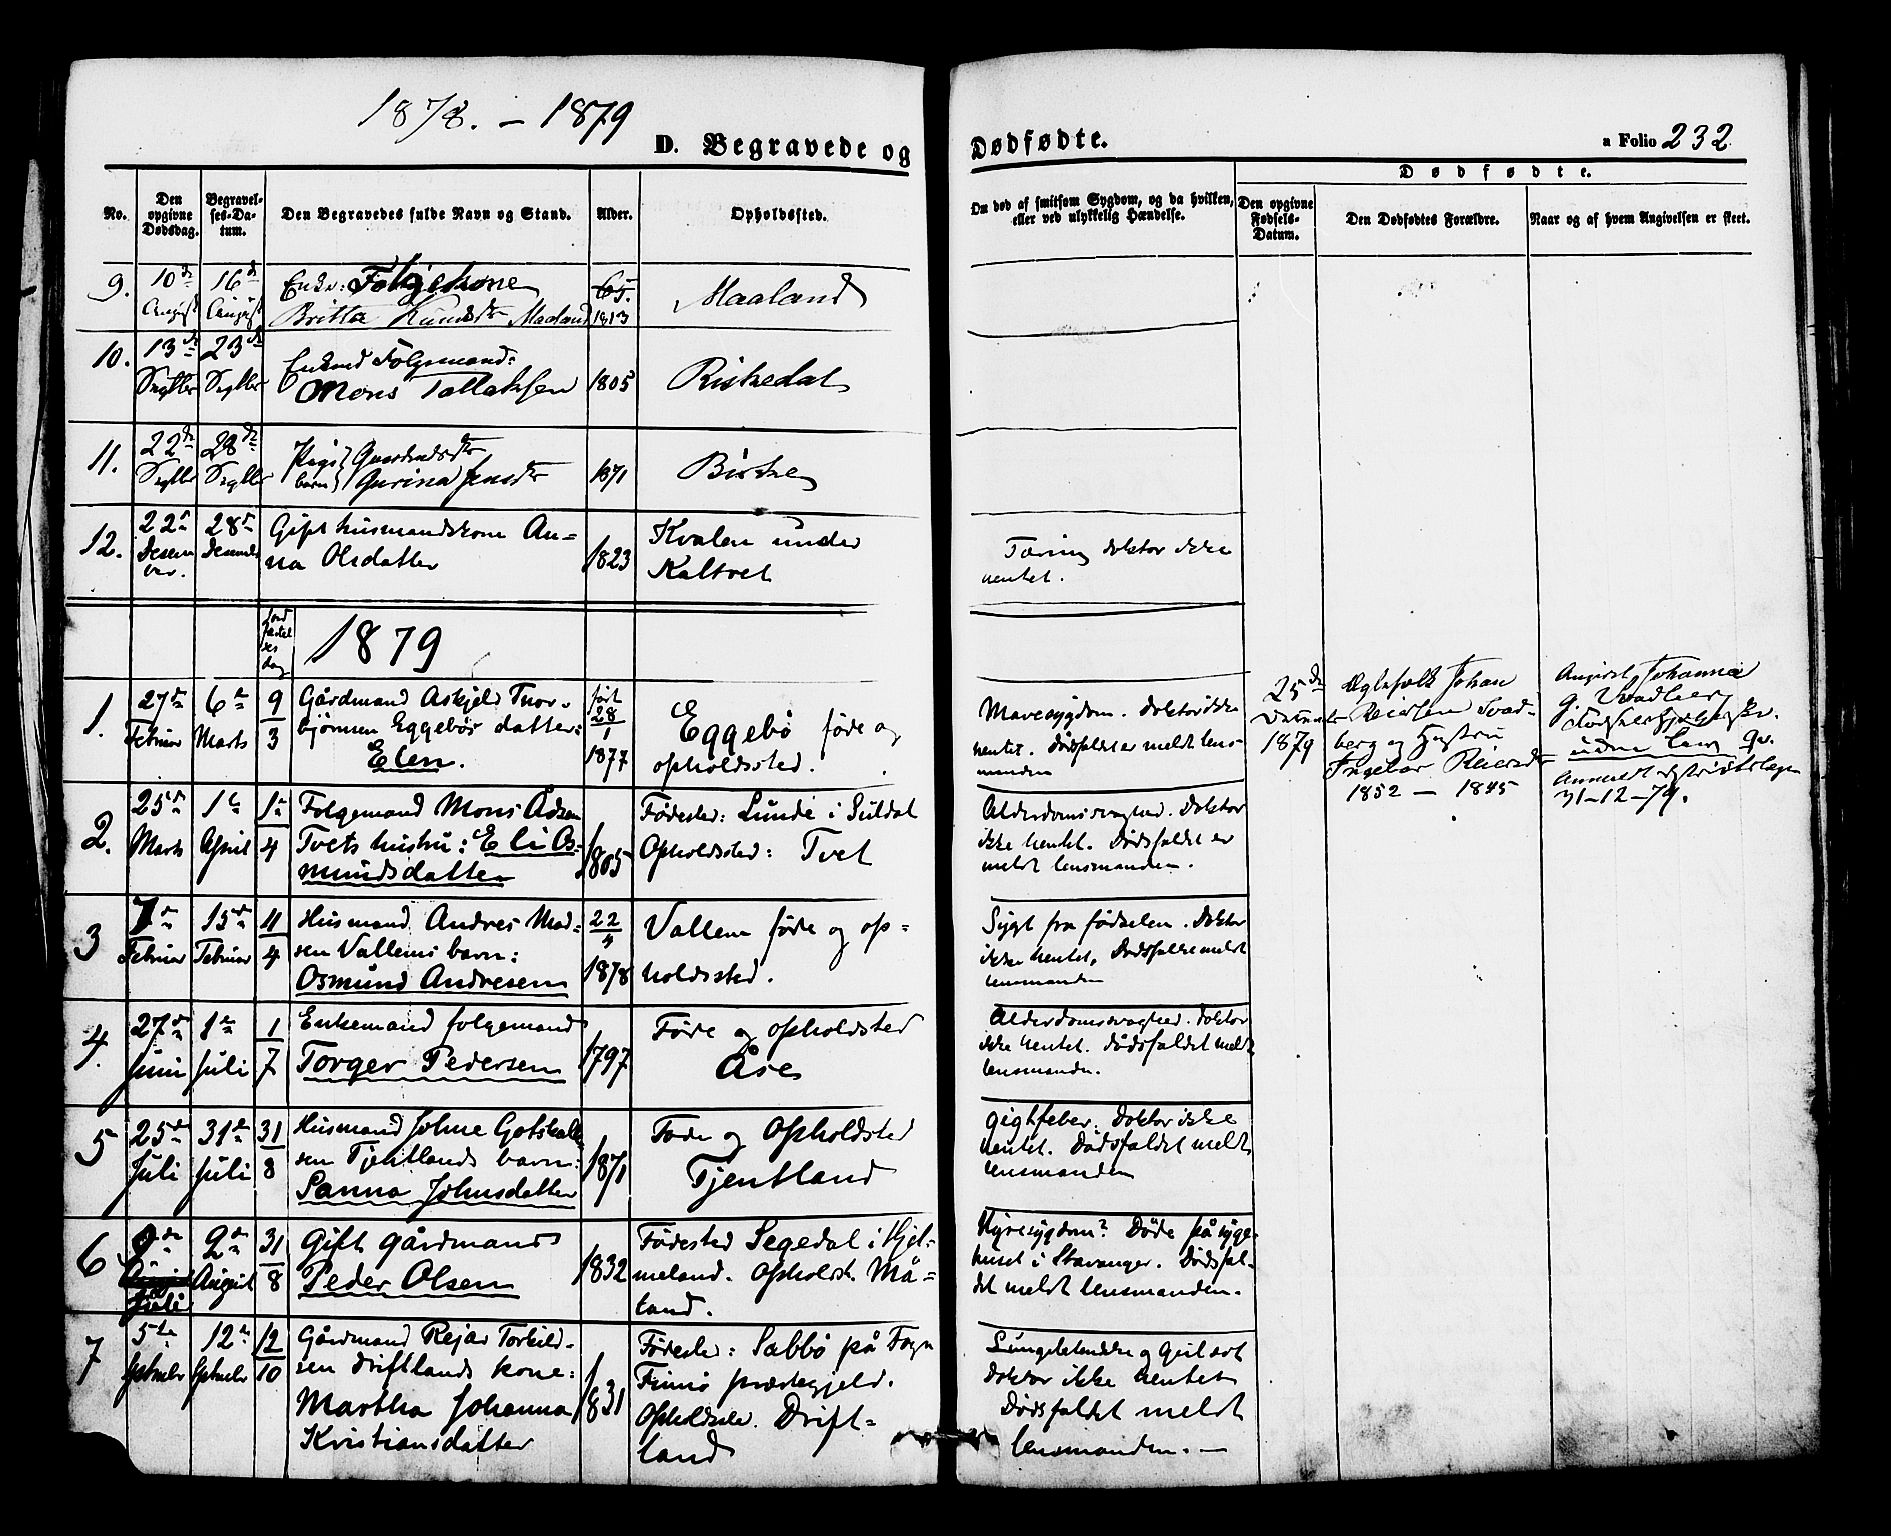 1878. – 1879
D. Begravede og
Dødfødte.
a Folio 232
No.
Den opgivne Dødsdag.
Begravelses-Datum.
Den Begravedes fulde Navn og Stand.
Alder.
Opholdssted.
Om død af smitsom Sygdom, og da hvilken, eller ved ulykkelig Hændelse.
Dødfødte.
Den opgivne Fødsels-Datum.
Den Dødfødtes Forældre.
Naar og af hvem Angivelsen er skeet.
9.
10de August
16de August
Enke: Folgekone
Britta Knudsdtr Maaland
65.
1813
Maaland
10.
13de Septbr
23de Septbr
Enkemd Folgemand:
Mons Tollaksen
1805
Riskedal
11.
22de Septbr
28de Septbr
Pige barn
Gurina Jensdtr
1871
Birke
12.
22de Desember.
28de Desember
Gift husmandskone An=
na Olsdatter
1823
Kvalen under
Kaltvet
Tæring doktor ikke
hentet.
Jord
fæstel
ses
dag
1879
1.
27de Februar
6te Marts
9/3
Gårdmand Askjeld Thor-
bjørnsen Eggebøs datter:
Elen.
født
28/1
1877
Eggebø føde og
opholdssted.
Mavesygdom. doktor ikke
hentet. Dødsfaldet er meldt lens-
manden
2.
25de Marts
1te April
1te/4
Folgemand Mons Ådsen
Tvets hustru: Eli Os=
mundsdatter
1805
Fødested: Lunde i Suldal
Opholdssted: Tvet
Alderdomssvaghed. Doktor
ikke hentet. Dødsfaldet er
meldt lensmanden.
3
7de Februar
15de Februar
11/4
Husmand Andres Mad-
sen Vallems barn:
Osmund Andresen
22/4
1878
Vallem føde og op=
holdssted.
Sygt fra fødselen. Doktor
ikke hentet, Dødsfaldet meldt
lensmanden
4.
27de Juni
1te Juli
1/7
Enkemand folgemand
Torger Pedersen
1797
Føde og opholdsted
Åse
Alderdomssvaghed. doktor
ikke hentet. dødsfaldet meldt
lensmanden.
5
25de Juli
31te Juli
31/8
Husmand Johne Gotskalk
sen Tjentlands barn:
Sanna Johnsdatter
1871
Føde og Opholdsted
Tjentland
gigtfeber. Doktor ikke
hentet. Dødsfaldet meldt
lensmanden
6
9de August Juli
9de August
31/8
Gift gårdmand
Peder Olsen
1832
Fødested Segedal i Hjel-
meland. Opholdst. Må=
land.
Nyresygdom? Døde på syge-
huset i Stavanger. Dødsfal-
det meldt lensmanden.
7
5te September
12te September
12/10
Gårdmand Rejar Torkild-
sen Driftlands kone:
Martha Johanna
Kristiansdatter
1831
Fødested: Sabbø på Fogn
Finnø præstegjeld.
Opholdssted. Drift=
land
Lungebetændelse og
Doktor ikke hentet
Dødsfaldet meldt
lensmanden. –
25de
1879
Ægtefolk Johan
Reiersen Svad-
berg og Hustru
Ingebor Reiersdtr
1852 – 1845
Angivet Johanna
uden Lem
Anmeldt distriktslægen
31-12-79.